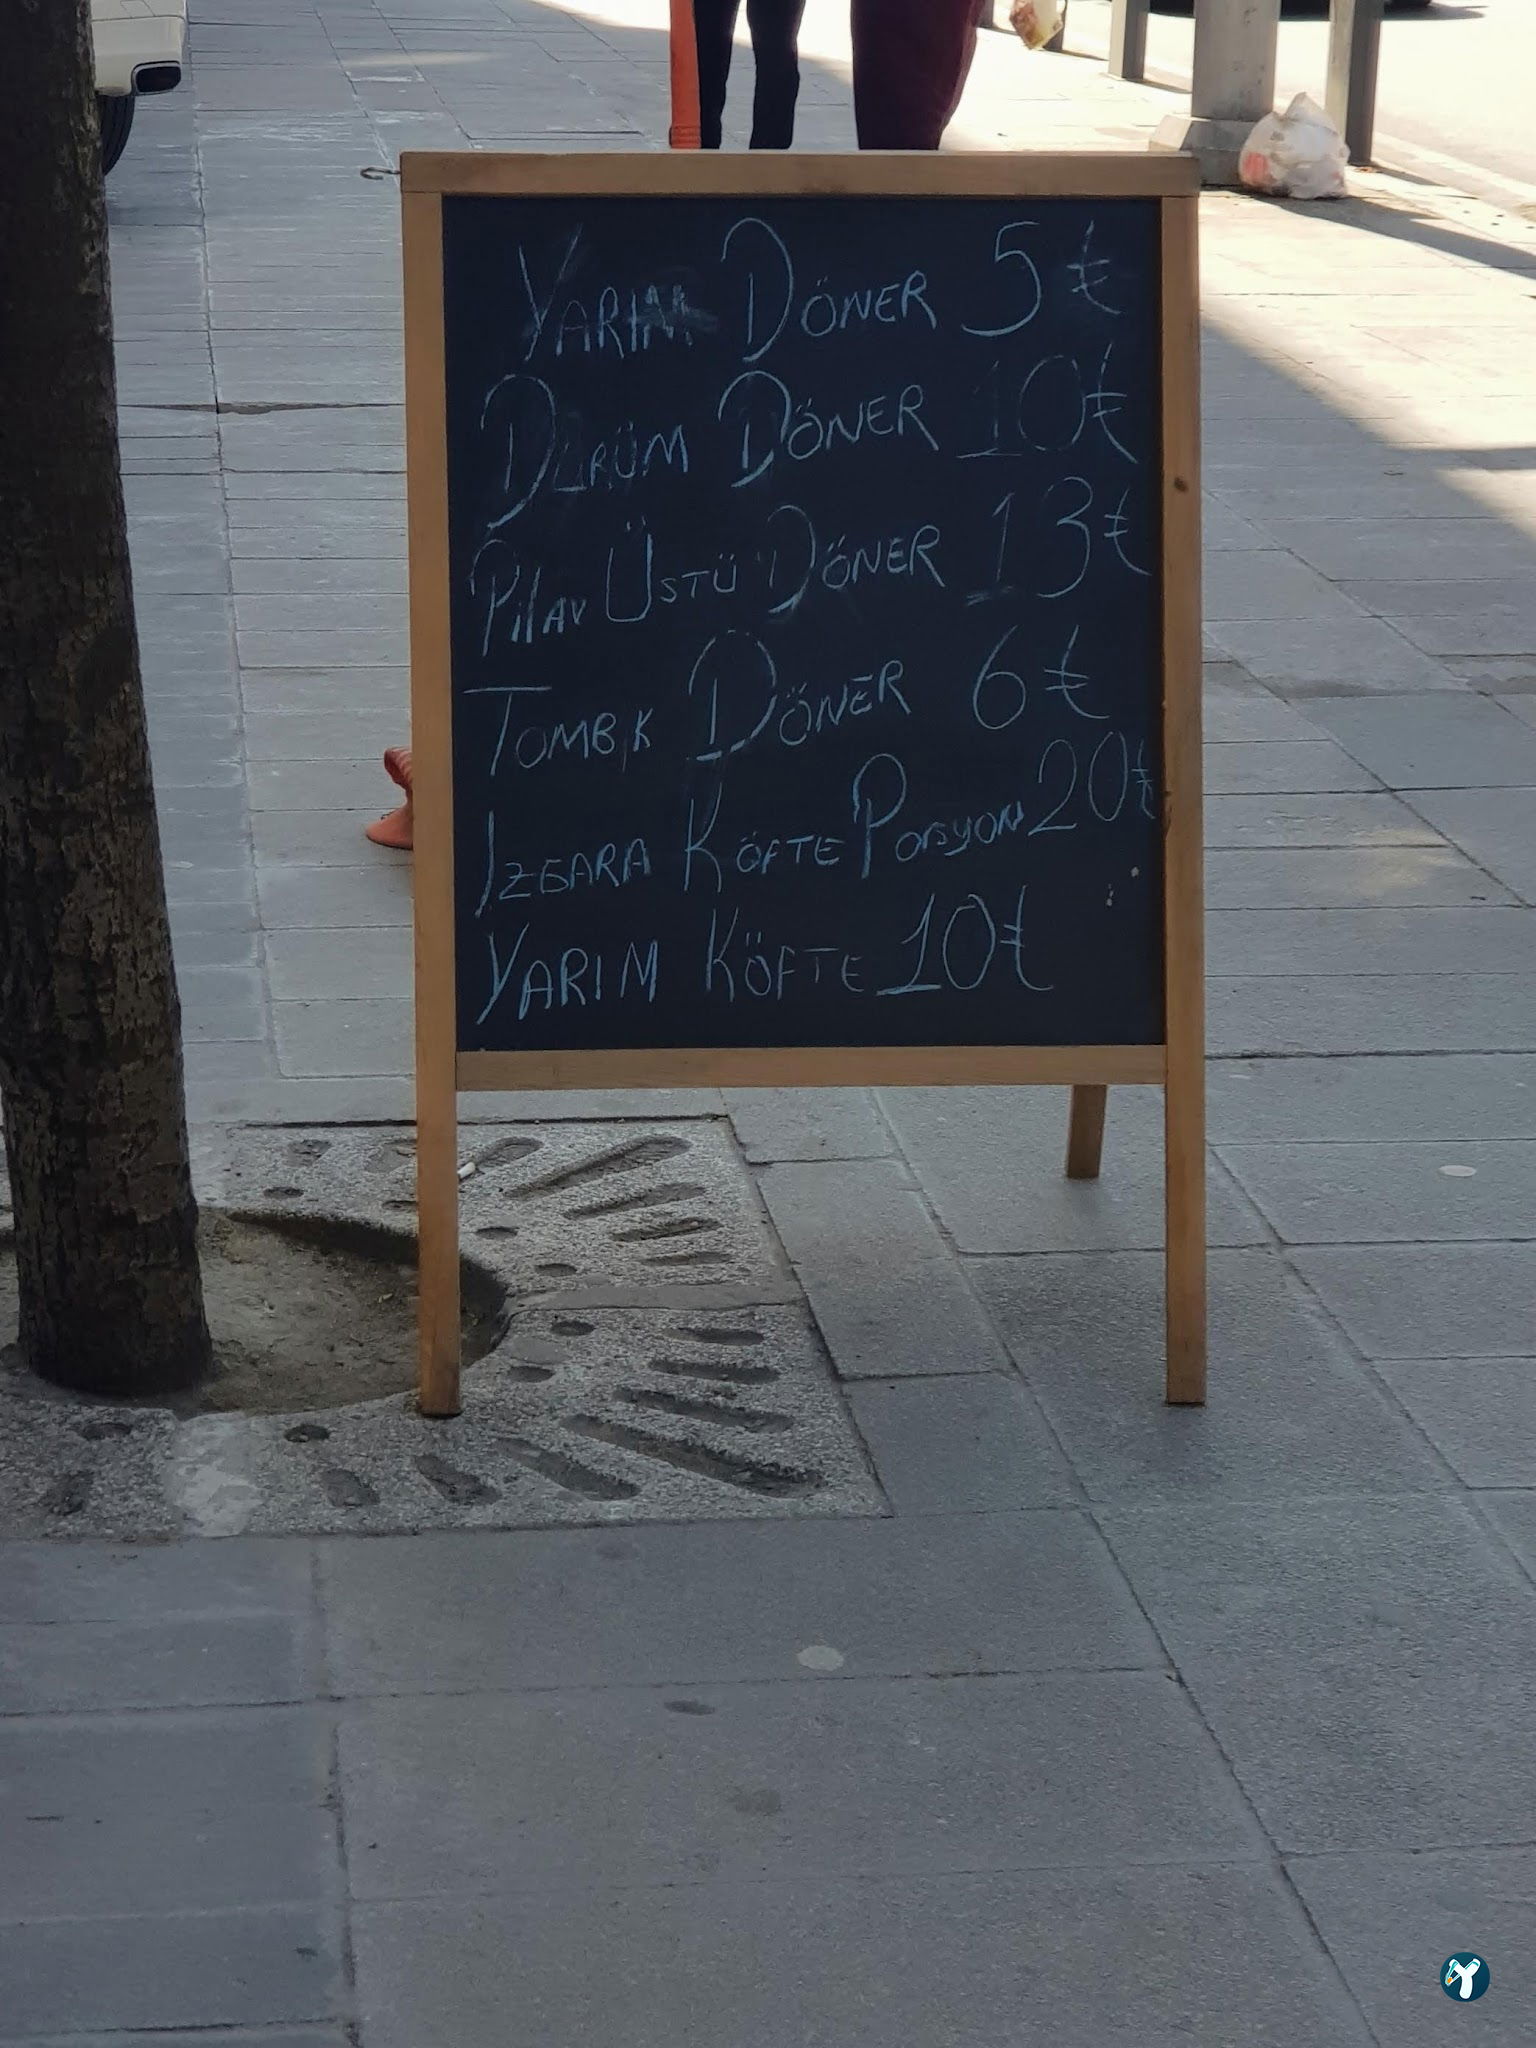 YARIM DÖNER 5₺
DÜRÜM DÖNER 10₺
PİLAV ÜSTÜ DÖNER 13₺
TOMBİK DÖNER 6₺
IZGARA KÖFTE PORSYON 20₺
YARIM KÖFTE 10₺